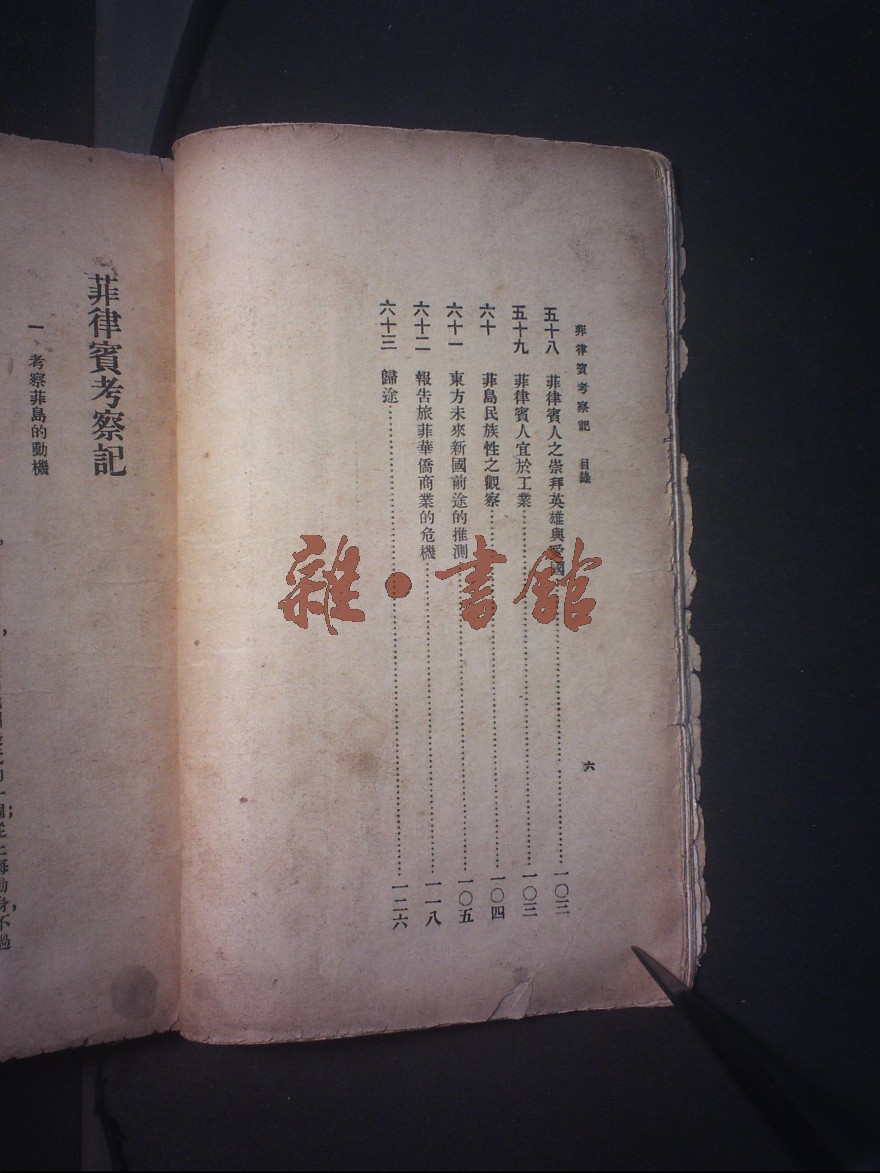 菲律賓考察記　目錄
六
五十八　菲律賓人之崇拜英雄與愛國……一〇三
五十九　菲律賓人宜於工業……一〇三
六十　菲島民族性之觀察……一〇四
六十一　東方未來新國前途的推測……一〇五
六十二　報告旅菲華僑商業的危機……一一八
六十三　歸途……一二六
雜·書館
菲律賓考察記
一　考察菲島的動機